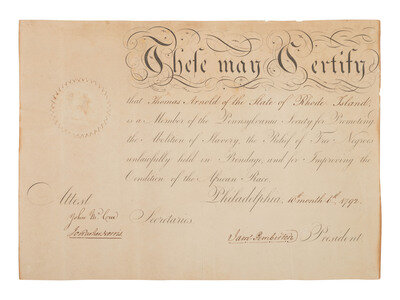 These may Certify
that Thomas Arnold of the State of Rhode Island,
is a Member of the Pennsylvania Society for Promoting
the Abolition of Slavery, the Relief of Free Negroes
unlawfully held in Bondage, and for Improving the
Condition of the African Race.
Philadelphia, 10th month 1st, 1792.
Attest
John McCrea
Secretaries
Jam's Pemberton President